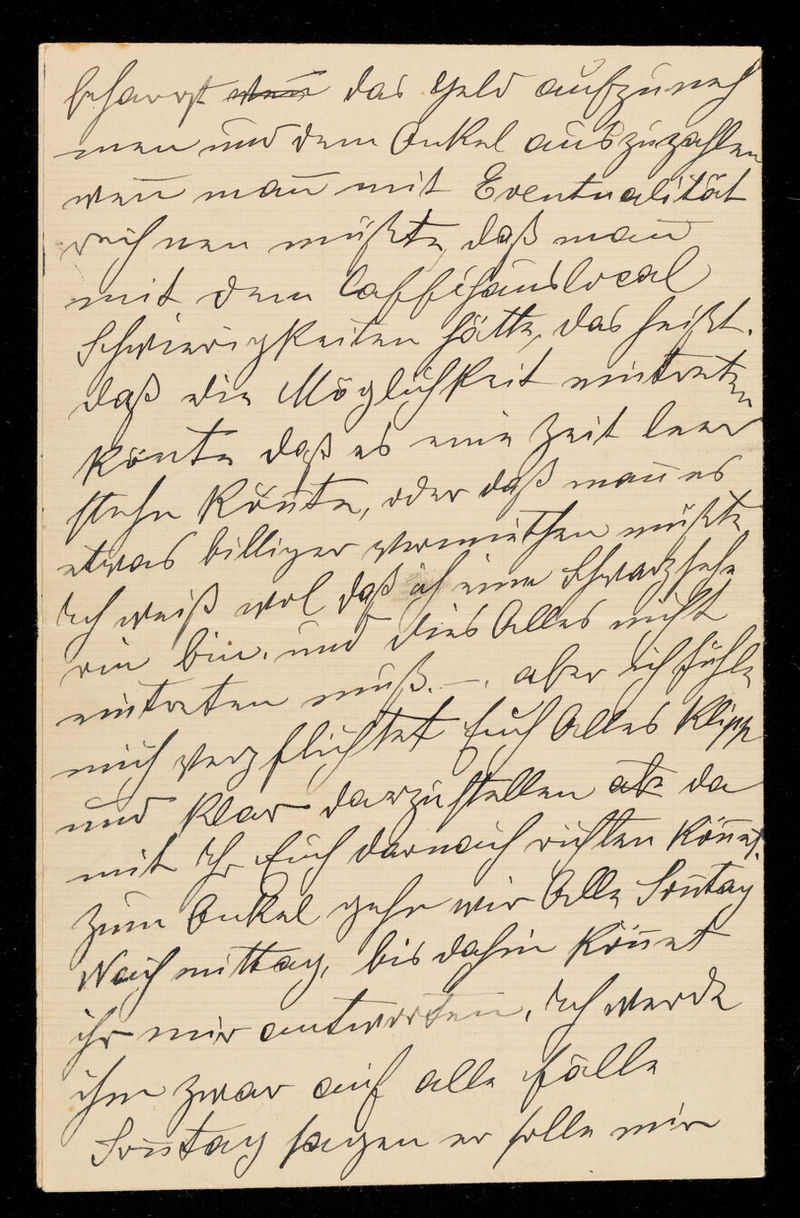 beharrt wen̄ das Geld aufzuneh
men und dem Onkel auszuzahlen
wen̄ man̄ mit Eventualität
rechnen müßte, daß man̄
mit dem Caffehauslocal
Schwierigkeiten hätte, das heißt.
daß die Möglichkeit eintreten
kön̄te daß es eine Zeit leer
stehn kön̄te, oder daß man̄ es
etwas billiger vermiethen müßte,
Ich weiß wol daß ich eine Schwarzsehe
rin bin. und dies Alles nicht
eintreten muß. —. aber ich fühle
mich verpflichtet Euch Alles Klipp
und Klar darzustellen da
mit Ihr Euch darnach richten kön̄et.
Zum Onkel gehn wir Alle Son̄tag
Nachmittag, bis dahin kön̄et
ihr mir antworten, Ich werde
ihm zwar auf alle Fälle
Son̄tag sagen er solle mir